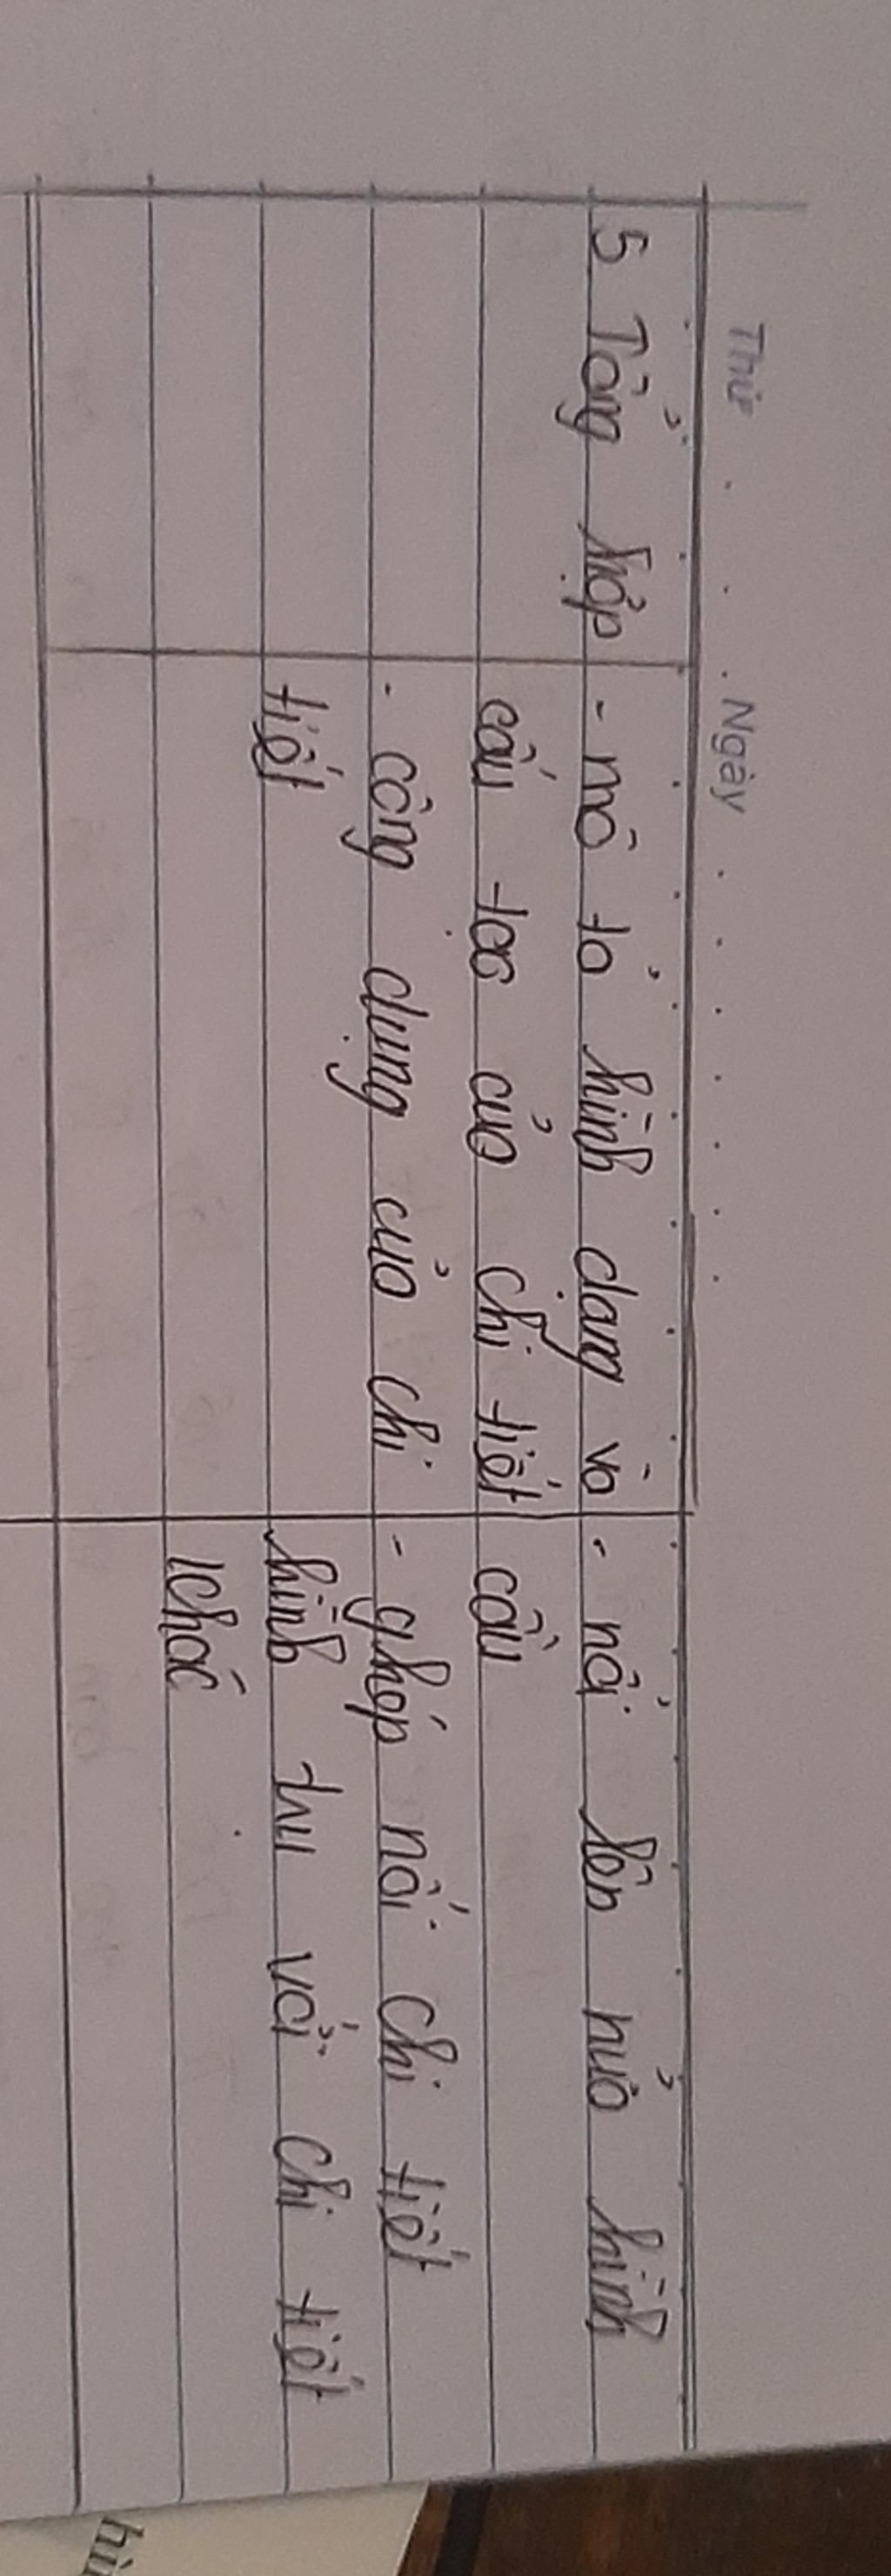 Thứ Ngày
5. Tổng hợp
- mô tả hình dạng và
cấu tạo của chi tiết
- công dụng của chi
tiết
- nửa hình
cầu
- ghép nối chi tiết
hình trụ với chi tiết
khác